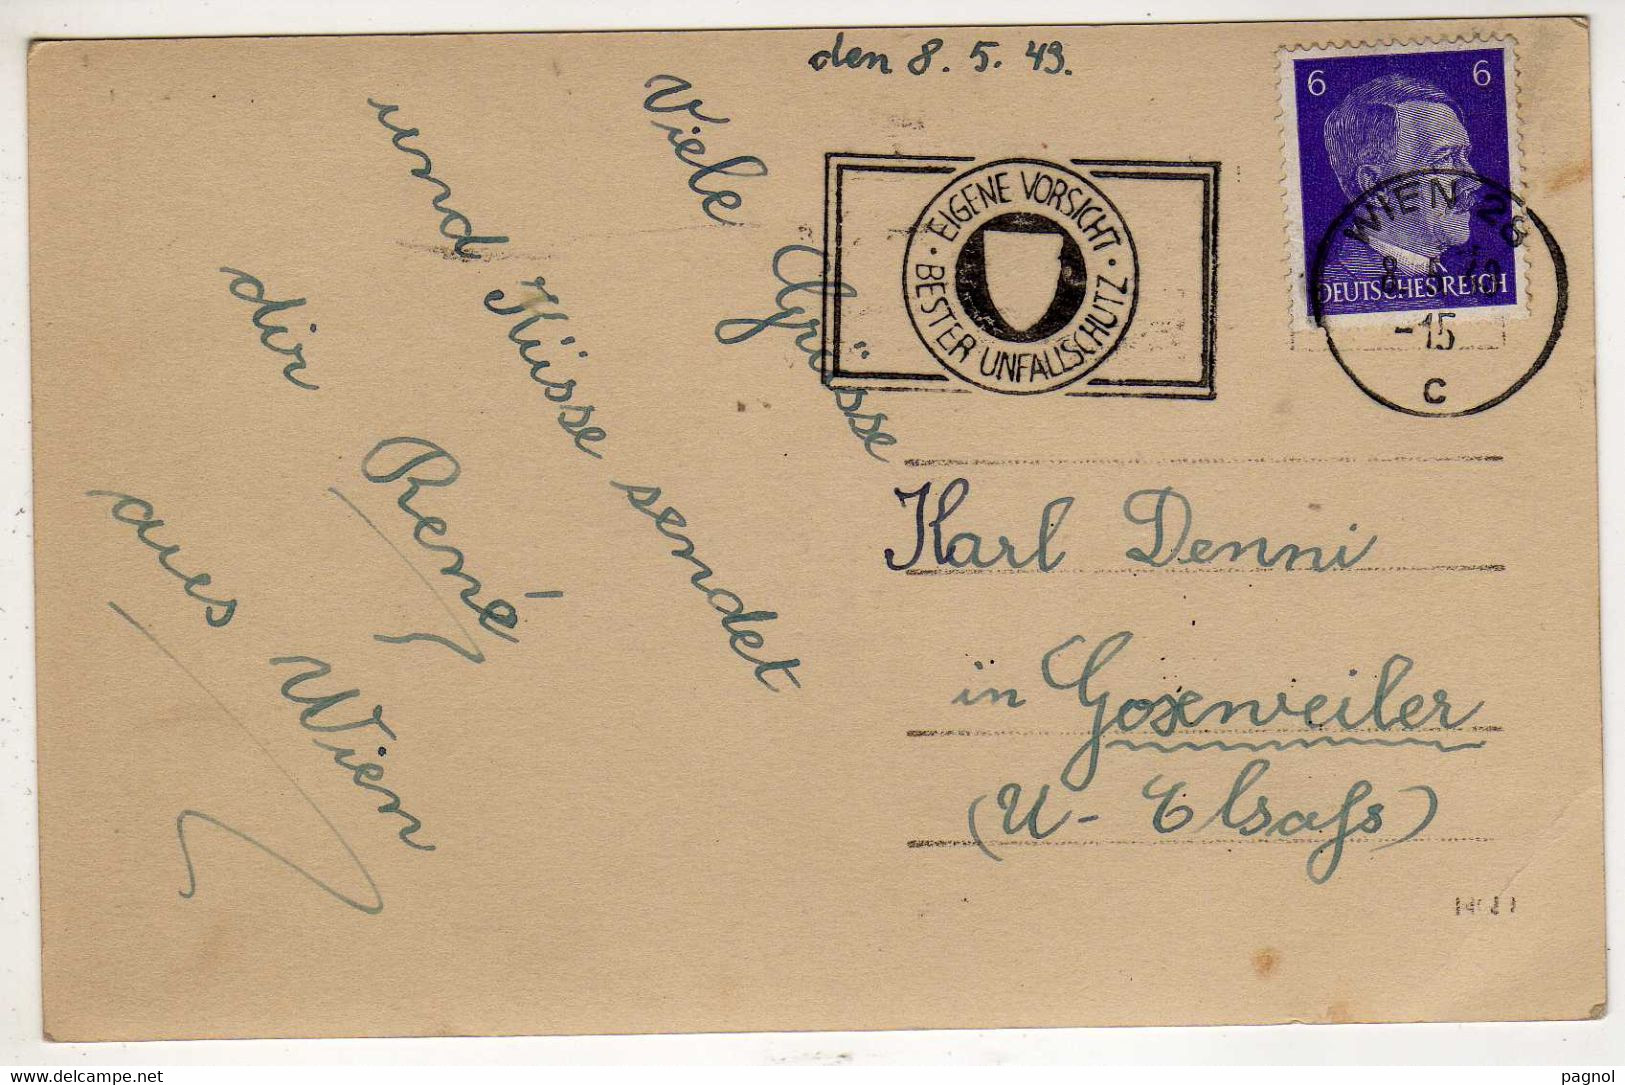 den 8. 5. 43.
Viele Grüsse
und Küsse sendet
dir René
aus Wien
EIGENE VORSICHT · BESTER UNFALLSCHUTZ ·
6 6
DEUTSCHES REICH
WIEN 28
-15
c
Karl Denni
in Goxenweiler
(U- Elsaß)
delcampe.net
pagnol